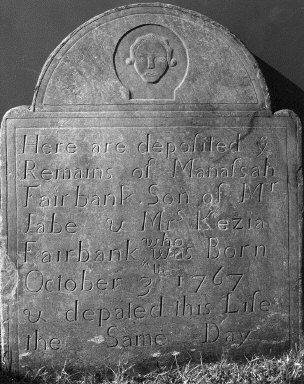 Here are deposited yͤ
Remains of Manaſsah
Fairbank Son of Mʳ
Jabe & Mʳˢ Kezia
Fairbank who was Born
October 3ᵗʰ 1767
& depaled this Life
the Same Day